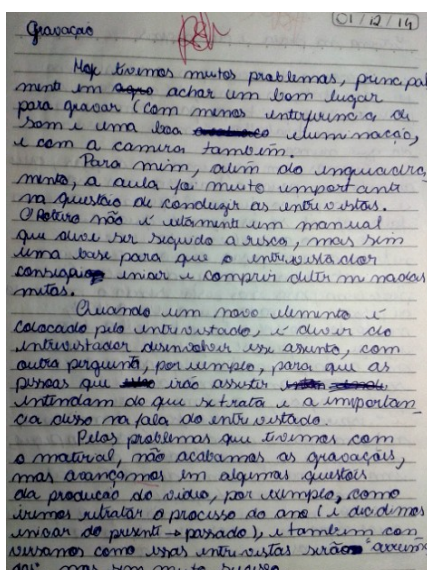 01/12/14
Gravação
Hoje tivemos muitos problemas, principal
mente em agro achar um bom lugar
para gravar (com menos interferência de
som e uma boa iluminação,
e com a camera também.
Para mim, além do enquadra
mento, a aula foi muito importante
na questão de conduzir as entrevistas.
O Roteiro não é um manual
que deve ser seguido a risca, mas sim
uma base para que o entrevistador
consiga iniciar e comprir determinadas
metas.
Quando um novo elemento é
colocado pelo entrevistado, é dever do
entrevistador desenvolver esse assunto, com
outra pergunta, por exemplo, para que as
pessoas que irão assistir
entendam do que se trata e a importân
cia disso na fala do entrevistado.
Pelos problemas que tivemos com
o material, não acabamos as gravações,
mas avançamos em algumas questões
da produção do vídeo, por exemplo, como
iremos retratar o processo do ano (e decidimos
iniciar do presente → passado), e também con
versamos como essas entrevistas serão
mas sem muito sucesso